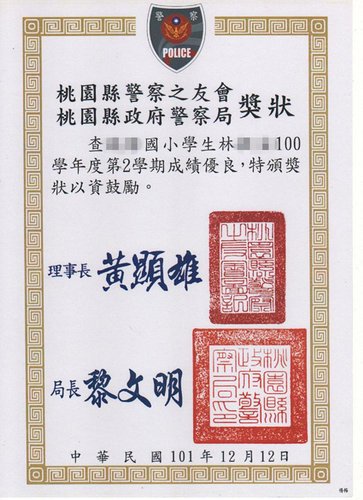 警察
POLICE
桃園縣警察之友會
桃園縣政府警察局 獎狀
查國小學生林100
學年度第2學期成績優良，特頒獎
狀以資鼓勵。
理事長 黃顯雄
局長 黎文明
中華民國101年12月12日